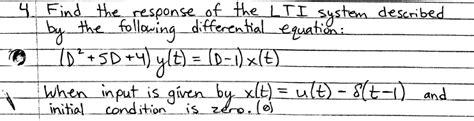 4. Find the response of the LTI system described
by the following differential equation:
(D² + 5D + 4) y(t) = (D-1) x(t)
When input is given by x(t) = u(t) - δ(t-1) and
initial condition is zero. (0)